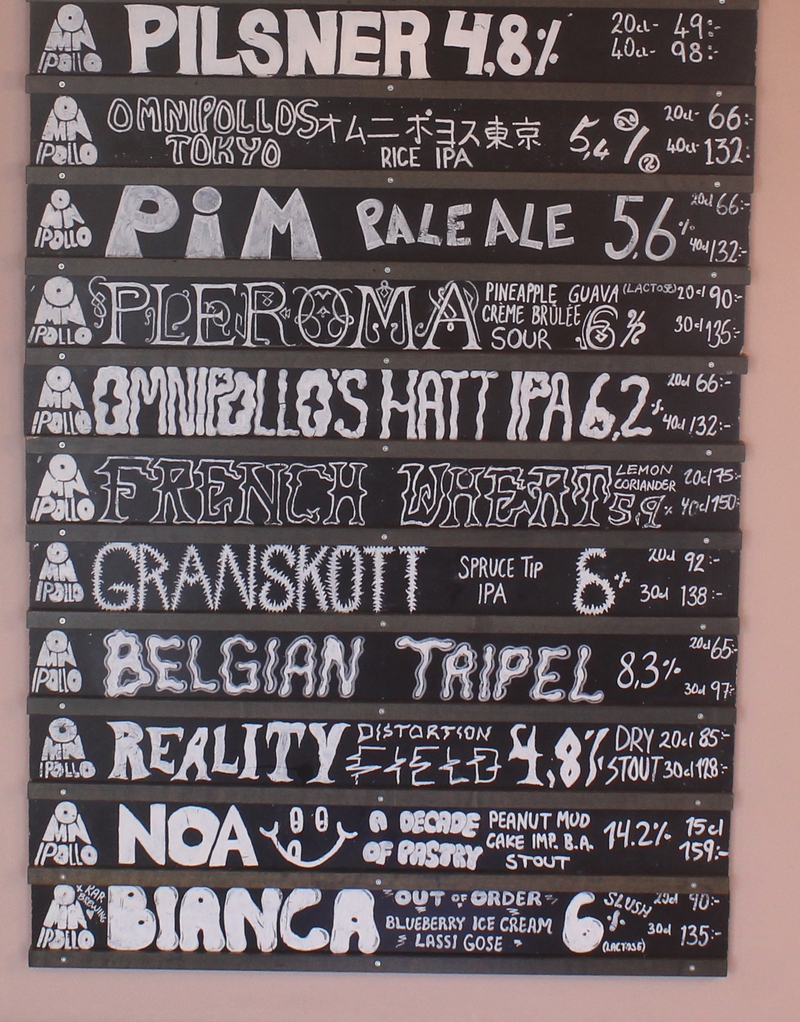 OMNIPOLLO PILSNER 4,8% 20cl- 49:-
40cl- 98:-
OMNIPOLLO OMNIPOLLOS オムニポヨス東京 5,4% 20cl- 66:-
TOKYO RICE IPA 40cl- 132:-
OMNIPOLLO PiM PALE ALE 5,6% 20cl 66:-
40cl 132:-
OMNIPOLLO PLEROMA PINEAPPLE GUAVA (LACTOSE) 20cl 90:-
CRÈME BRÛLÉE 6%
SOUR 30cl 135:-
OMNIPOLLO OMNIPOLLO'S HATT IPA 6,2% 20cl 66:-
40cl 132:-
OMNIPOLLO FRENCH WHEAT LEMON 20cl 75:-
CORIANDER
5,9% 40cl 150:-
OMNIPOLLO GRANSKOTT SPRUCE TIP 6% 20cl 92:-
IPA 30cl 138:-
OMNIPOLLO BELGIAN TRIPEL 8,3% 20cl 65:-
30cl 97:-
OMNIPOLLO REALITY DISTORTION 4,8% DRY 20cl 85:-
FIELD STOUT 30cl 128:-
OMNIPOLLO NOA A DECADE PEANUT MUD 14.2% 15cl
OF PASTRY CAKE IMP. B.A. 159:-
STOUT
OMNIPOLLO × KAR BREWING BIANCA "OUT OF ORDER" 6% SLUSH 20cl 90:-
BLUEBERRY ICE CREAM
LASSI GOSE (LACTOSE) 30cl 135:-